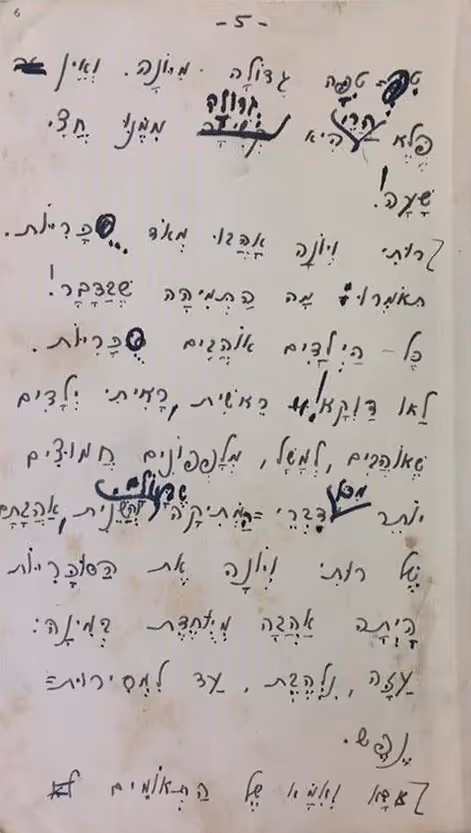 -5-
גְדוֹלָה מִיּוֹנָה. וְאֵין
גדולה
פֶּלֶא הרי הִיא מִמֶּנּוּ חֲצִי
שָׁעָה!
רוּתִי וְיוֹנָה אָהֲבוּ מְאֹד סֻכָּרִיּוֹת.
תֹאמְרוּ: מָה הַתְּמִיהָה שֶׁבַּדָּבָר!
כָּל־הַיְלָדִים אוֹהֲבִים סֻכָּרִיּוֹת.
לַאו דַּוְקָא! רֵאשִׁית, רָאִיתִי יְלָדִים
שֶׁאוֹהֲבִים, לְמָשָׁל, מְלָפְפוֹנִים חֲמוּצִים
מכל שבעולם.
יוֹתֵר דִּבְרֵי־הַמְּתִיקָה וְהַשֵּׁנִית, אַהֲבָתָם
שֶׁל רוּתִי וְיוֹנָה אֶת הַסּוּכָּרִיּוֹת
הָיְתָה אַהֲבָה מְיֻחֶדֶת בְּמִינָהּ:
עַזָּה, נִלְהֶבֶת, עַד לִמְסִירוּת־
נֶפֶשׁ.
אַבָּא וְאִמָּא שֶׁל הַתְּאוֹמִים